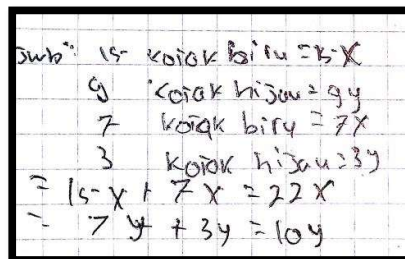 Jwb: 15 kotak biru = 15x
9 kotak hijau = 9y
7 kotak biru = 7x
3 kotak hijau = 3y
= 15x + 7x = 22x
= 7y + 3y = 10y